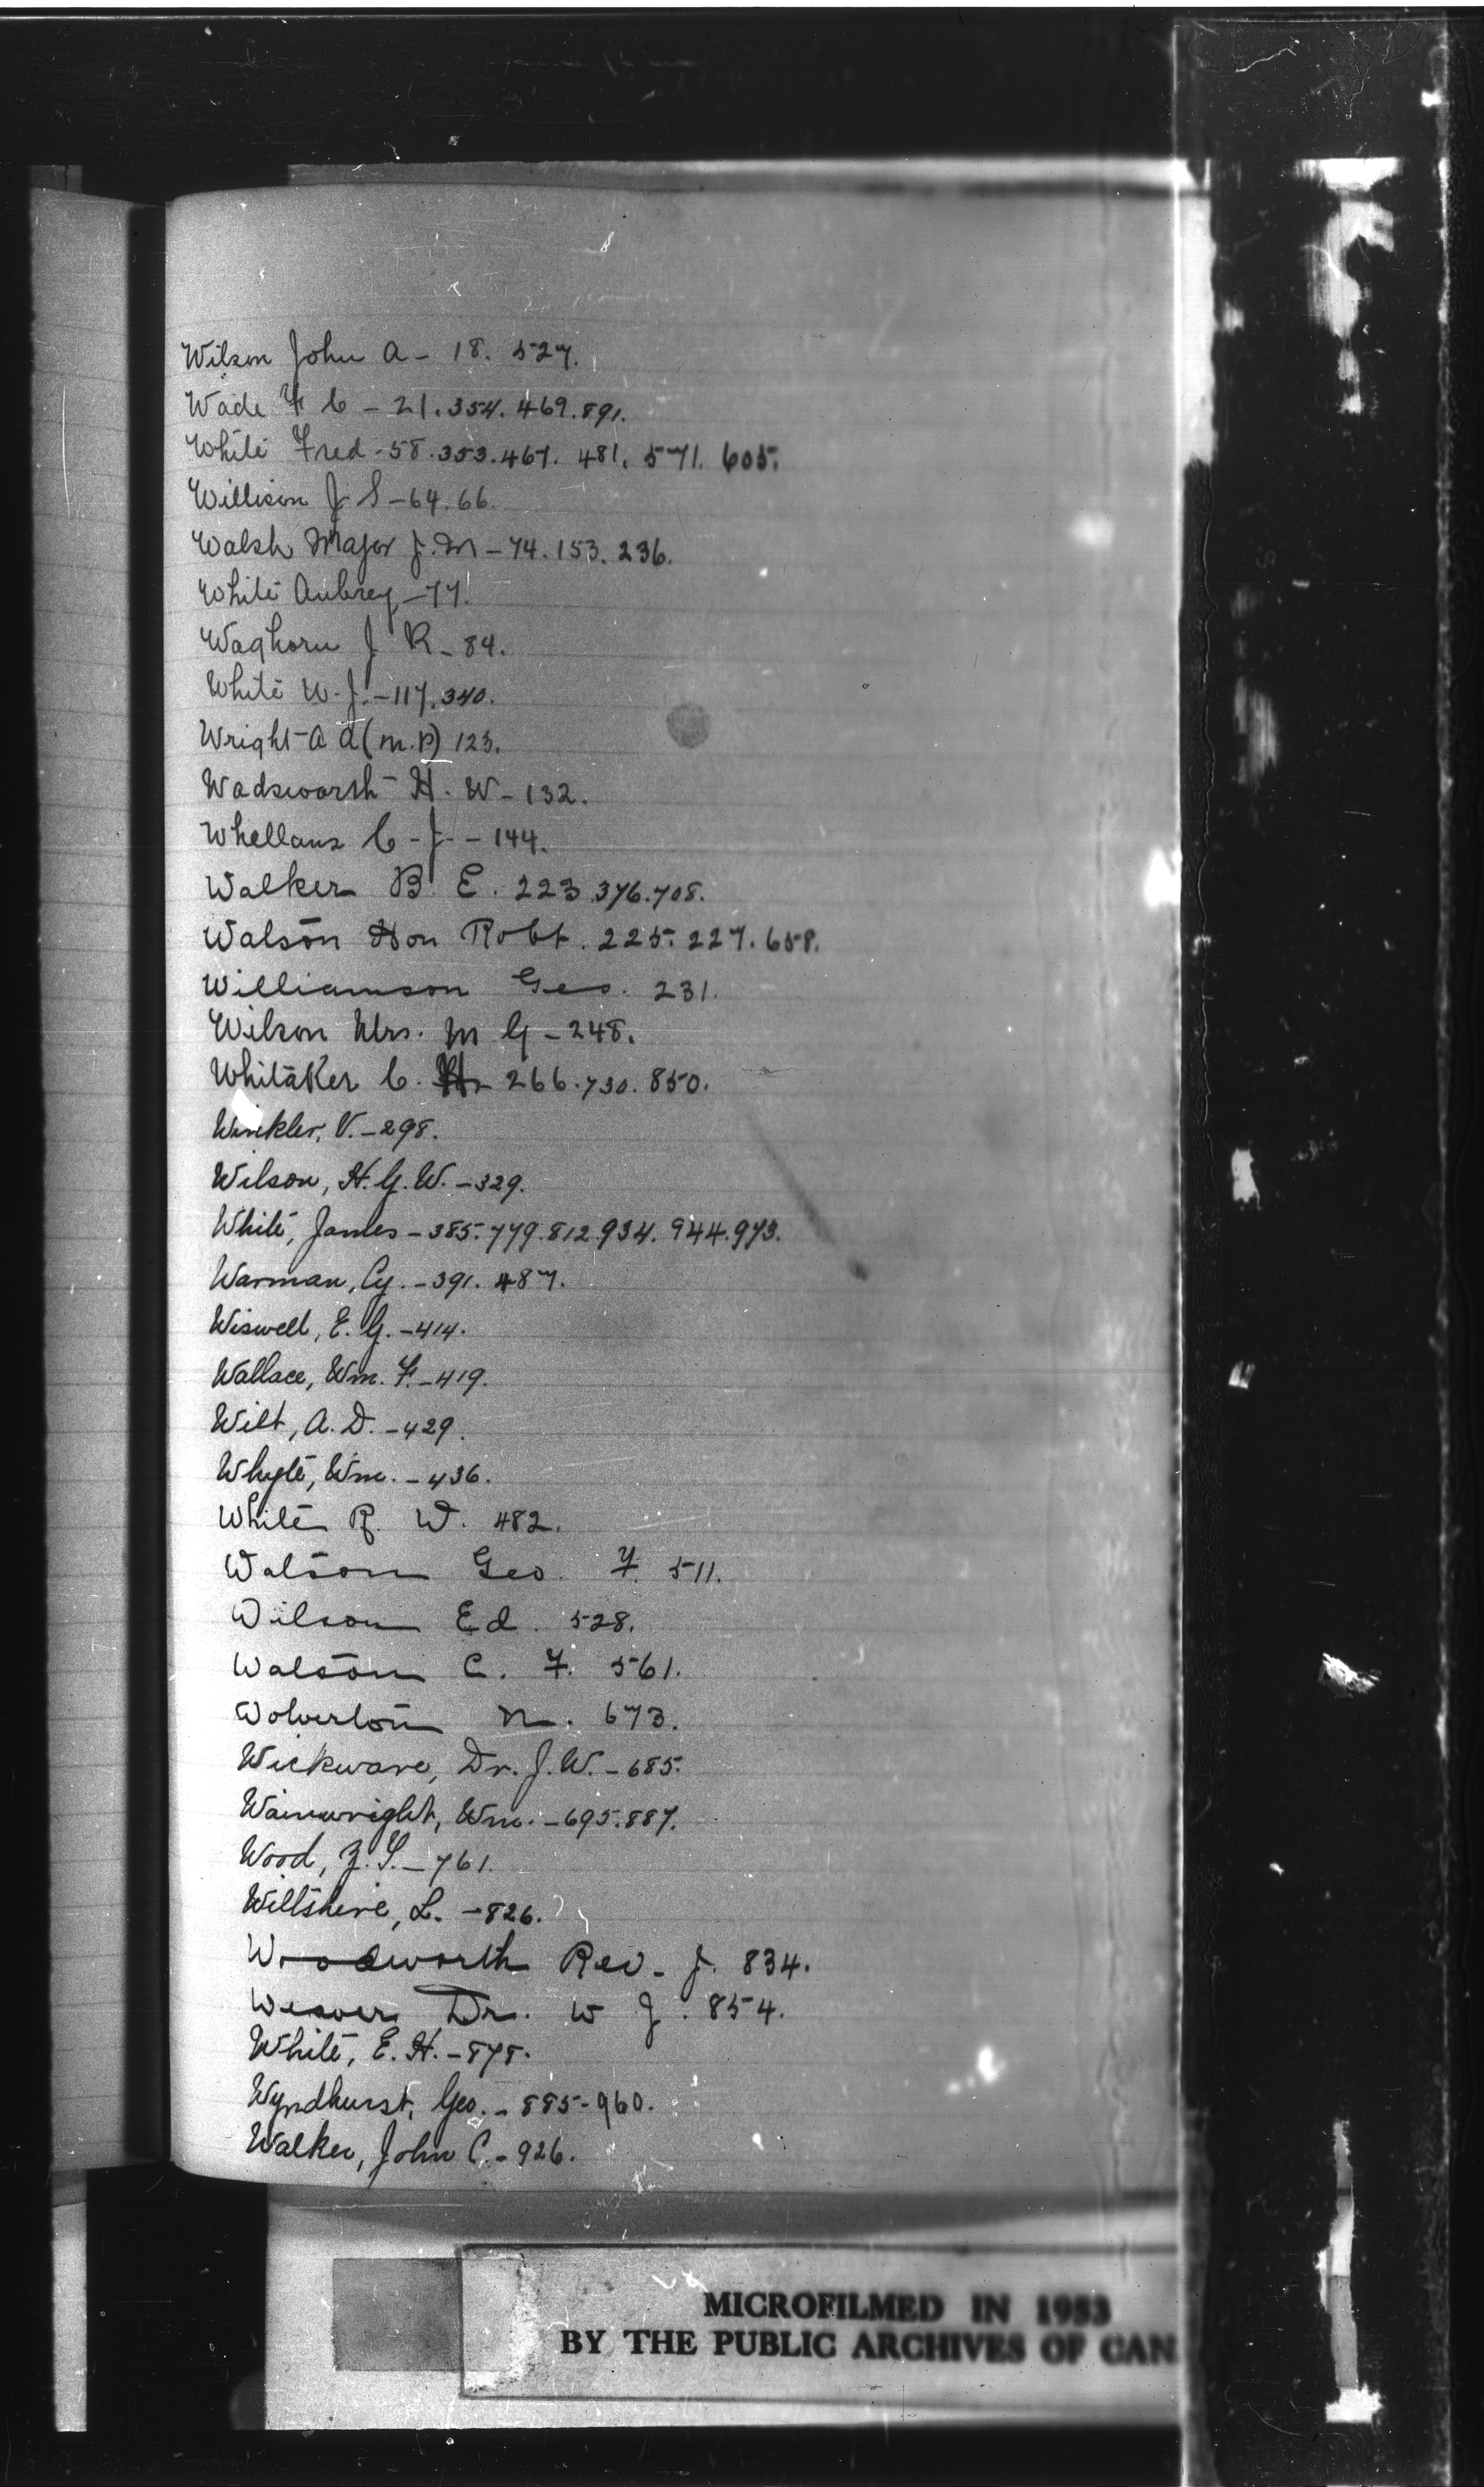 Wilson John A - 18. 527.
Wade F C - 21. 354. 469. 891.
White Fred - 58. 353. 467. 481. 571. 605.
Willison J S - 64. 66.
Walsh Major J. M - 74. 153. 236.
White Aubrey - 77.
Waghorn J R - 84.
White W. J. - 117. 340.
Wright A A (M.P) 123.
Wadsworth H. W - 132.
Whellans C - J - 144.
Walker B. E. 223 376. 708.
Watson Hon Robt. 225. 227. 658.
Williamson Geo. 231.
Wilson Mrs. M G - 248.
Whitaker C. H - 266. 730. 850.
Winkler, V. - 298.
Wilson, H. G. W. - 329.
White, James - 385. 779. 812. 934. 944. 973.
Warman, Cy. - 391. 487.
Wiswell, E. G. - 414.
Wallace, Wm. F. - 419.
Wilt, A. D. - 429.
Whyte, Wm. - 436.
White R. W. 482.
Watson Geo. F. 511.
Wilson Ed. 528.
Watson C. F. 561.
Wolverton N. 673.
Wickware, Dr. J. W. - 685.
Wainwright, Wm. - 695. 887.
Wood, Z. S. - 761.
Wiltshire, L. - 826.
Woodworth Rev. J. 834.
Weaver Dr. W J. 854.
White, E. H. - 878.
Wyndhurst, Geo. - 885 - 960.
Walker, John C. - 926.
MICROFILMED IN 1953
BY THE PUBLIC ARCHIVES OF CAN